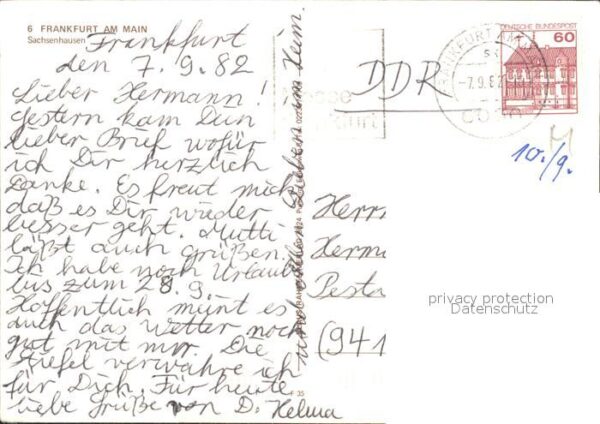 6 FRANKFURT AM MAIN
Sachsenhausen
Frankfurt
den 7.9.82
Lieber Hermann!
gestern kam Dein
lieber Brief wofür
ich Dir herzlich
Danke. Es freut mich
daß es Dir wieder
besser geht. Mutti
läßt auch grüßen.
Ich habe noch Urlaub
bis zum 28.9.
Hoffentlich meint es
auch das Wetter noch
gut mit mir. Die
Stiefel verwahre ich
für Dich. Für heute
liebe Grüße von D. Helma
und allen Lieben im Heim.
F 35
DEUTSCHE BUNDESPOST
60
FRANKFURT AM MAIN
-7.9.82
6000
DDR
10./9.
Herrn
Herma
Pesta
(941
privacy protection
Datenschutz